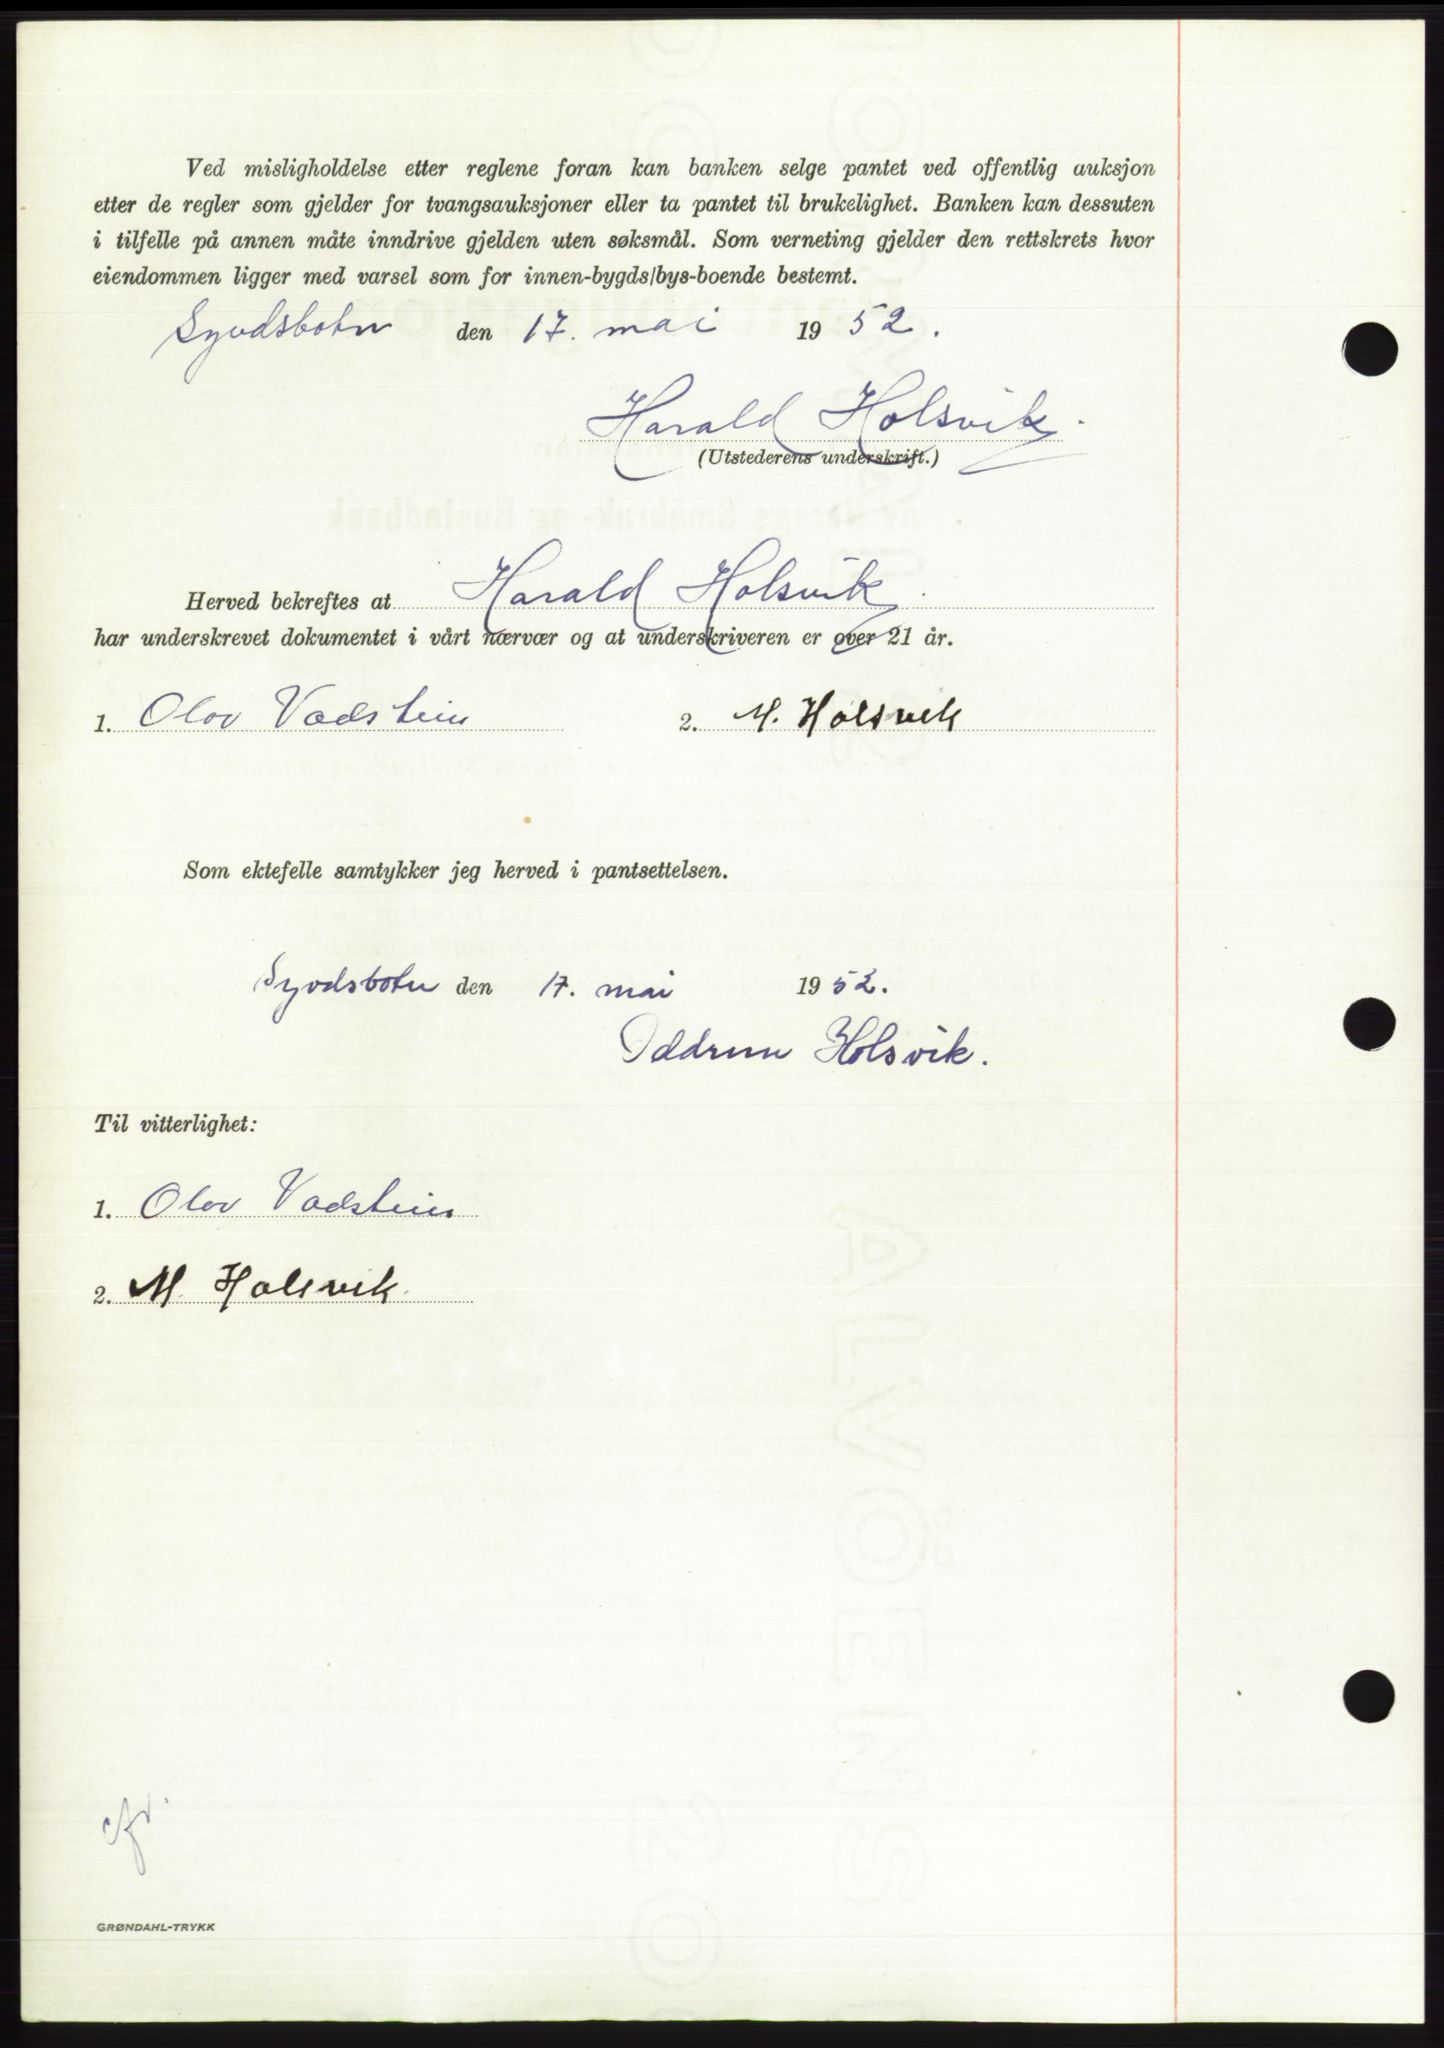 Ved misligholdelse etter reglene foran kan banken selge pantet ved offentlig auksjon
etter de regler som gjelder for tvangsauksjoner eller ta pantet til brukelighet. Banken kan dessuten
i tilfelle på annen måte inndrive gjelden uten søksmål. Som verneting gjelder den rettskrets hvor
eiendommen ligger med varsel som for innen-bygds/bys-boende bestemt.
Syvdsbotn den 17. mai 1952.
Harald Holsvik.
(Utstederens underskrift.)
Herved bekreftes at Harald Holsvik.
har underskrevet dokumentet i vårt nærvær og at underskriveren er over 21 år.
1. Olav Vadstein 2. M. Holsvik
Som ektefelle samtykker jeg herved i pantsettelsen.
Syvdsbotn den 17. mai 1952.
Oddrun Holsvik.
Til vitterlighet:
1. Olav Vadstein
2. M. Holsvik.
GRØNDAHL-TRYKK